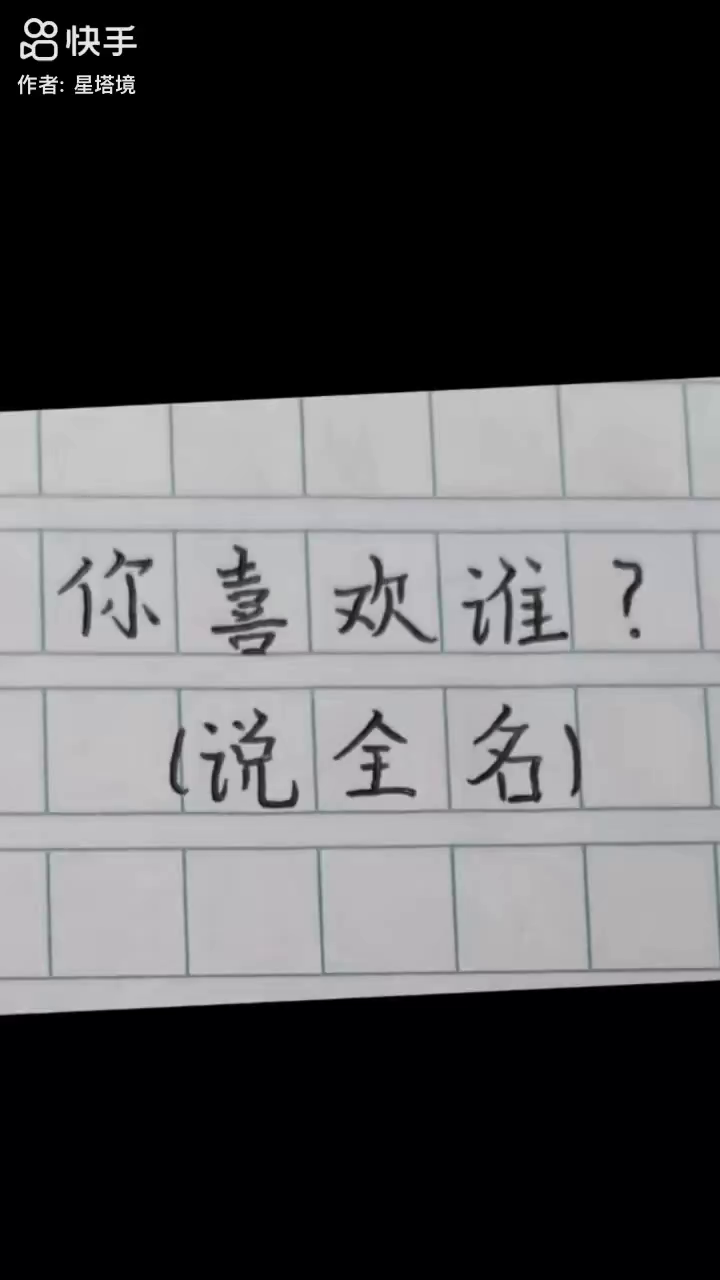 快手
作者: 星塔境
你喜欢谁?
(说全名)